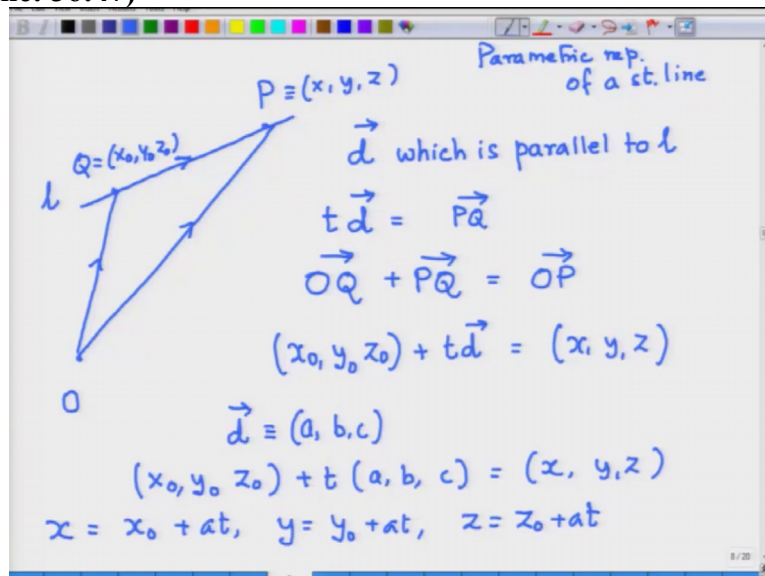 Parametric rep.
of a st. line
P ≡ (x, y, z)
Q = (x₀, y₀ z₀)
l
O
d⃗ which is parallel to l
t d⃗ = P͞Q⃗
OQ⃗ + PQ⃗ = OP⃗
(x₀, y₀ z₀) + t d⃗ = (x, y, z)
d⃗ ≡ (a, b, c)
(x₀, y₀ z₀) + t (a, b, c) = (x, y, z)
x = x₀ + at, y = y₀ + at, z = z₀ + at
8/20